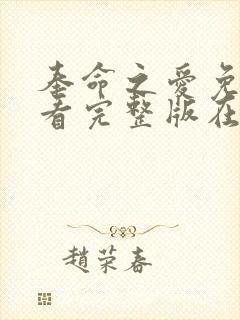 奉命之爱免
看完整版在
趙荣春